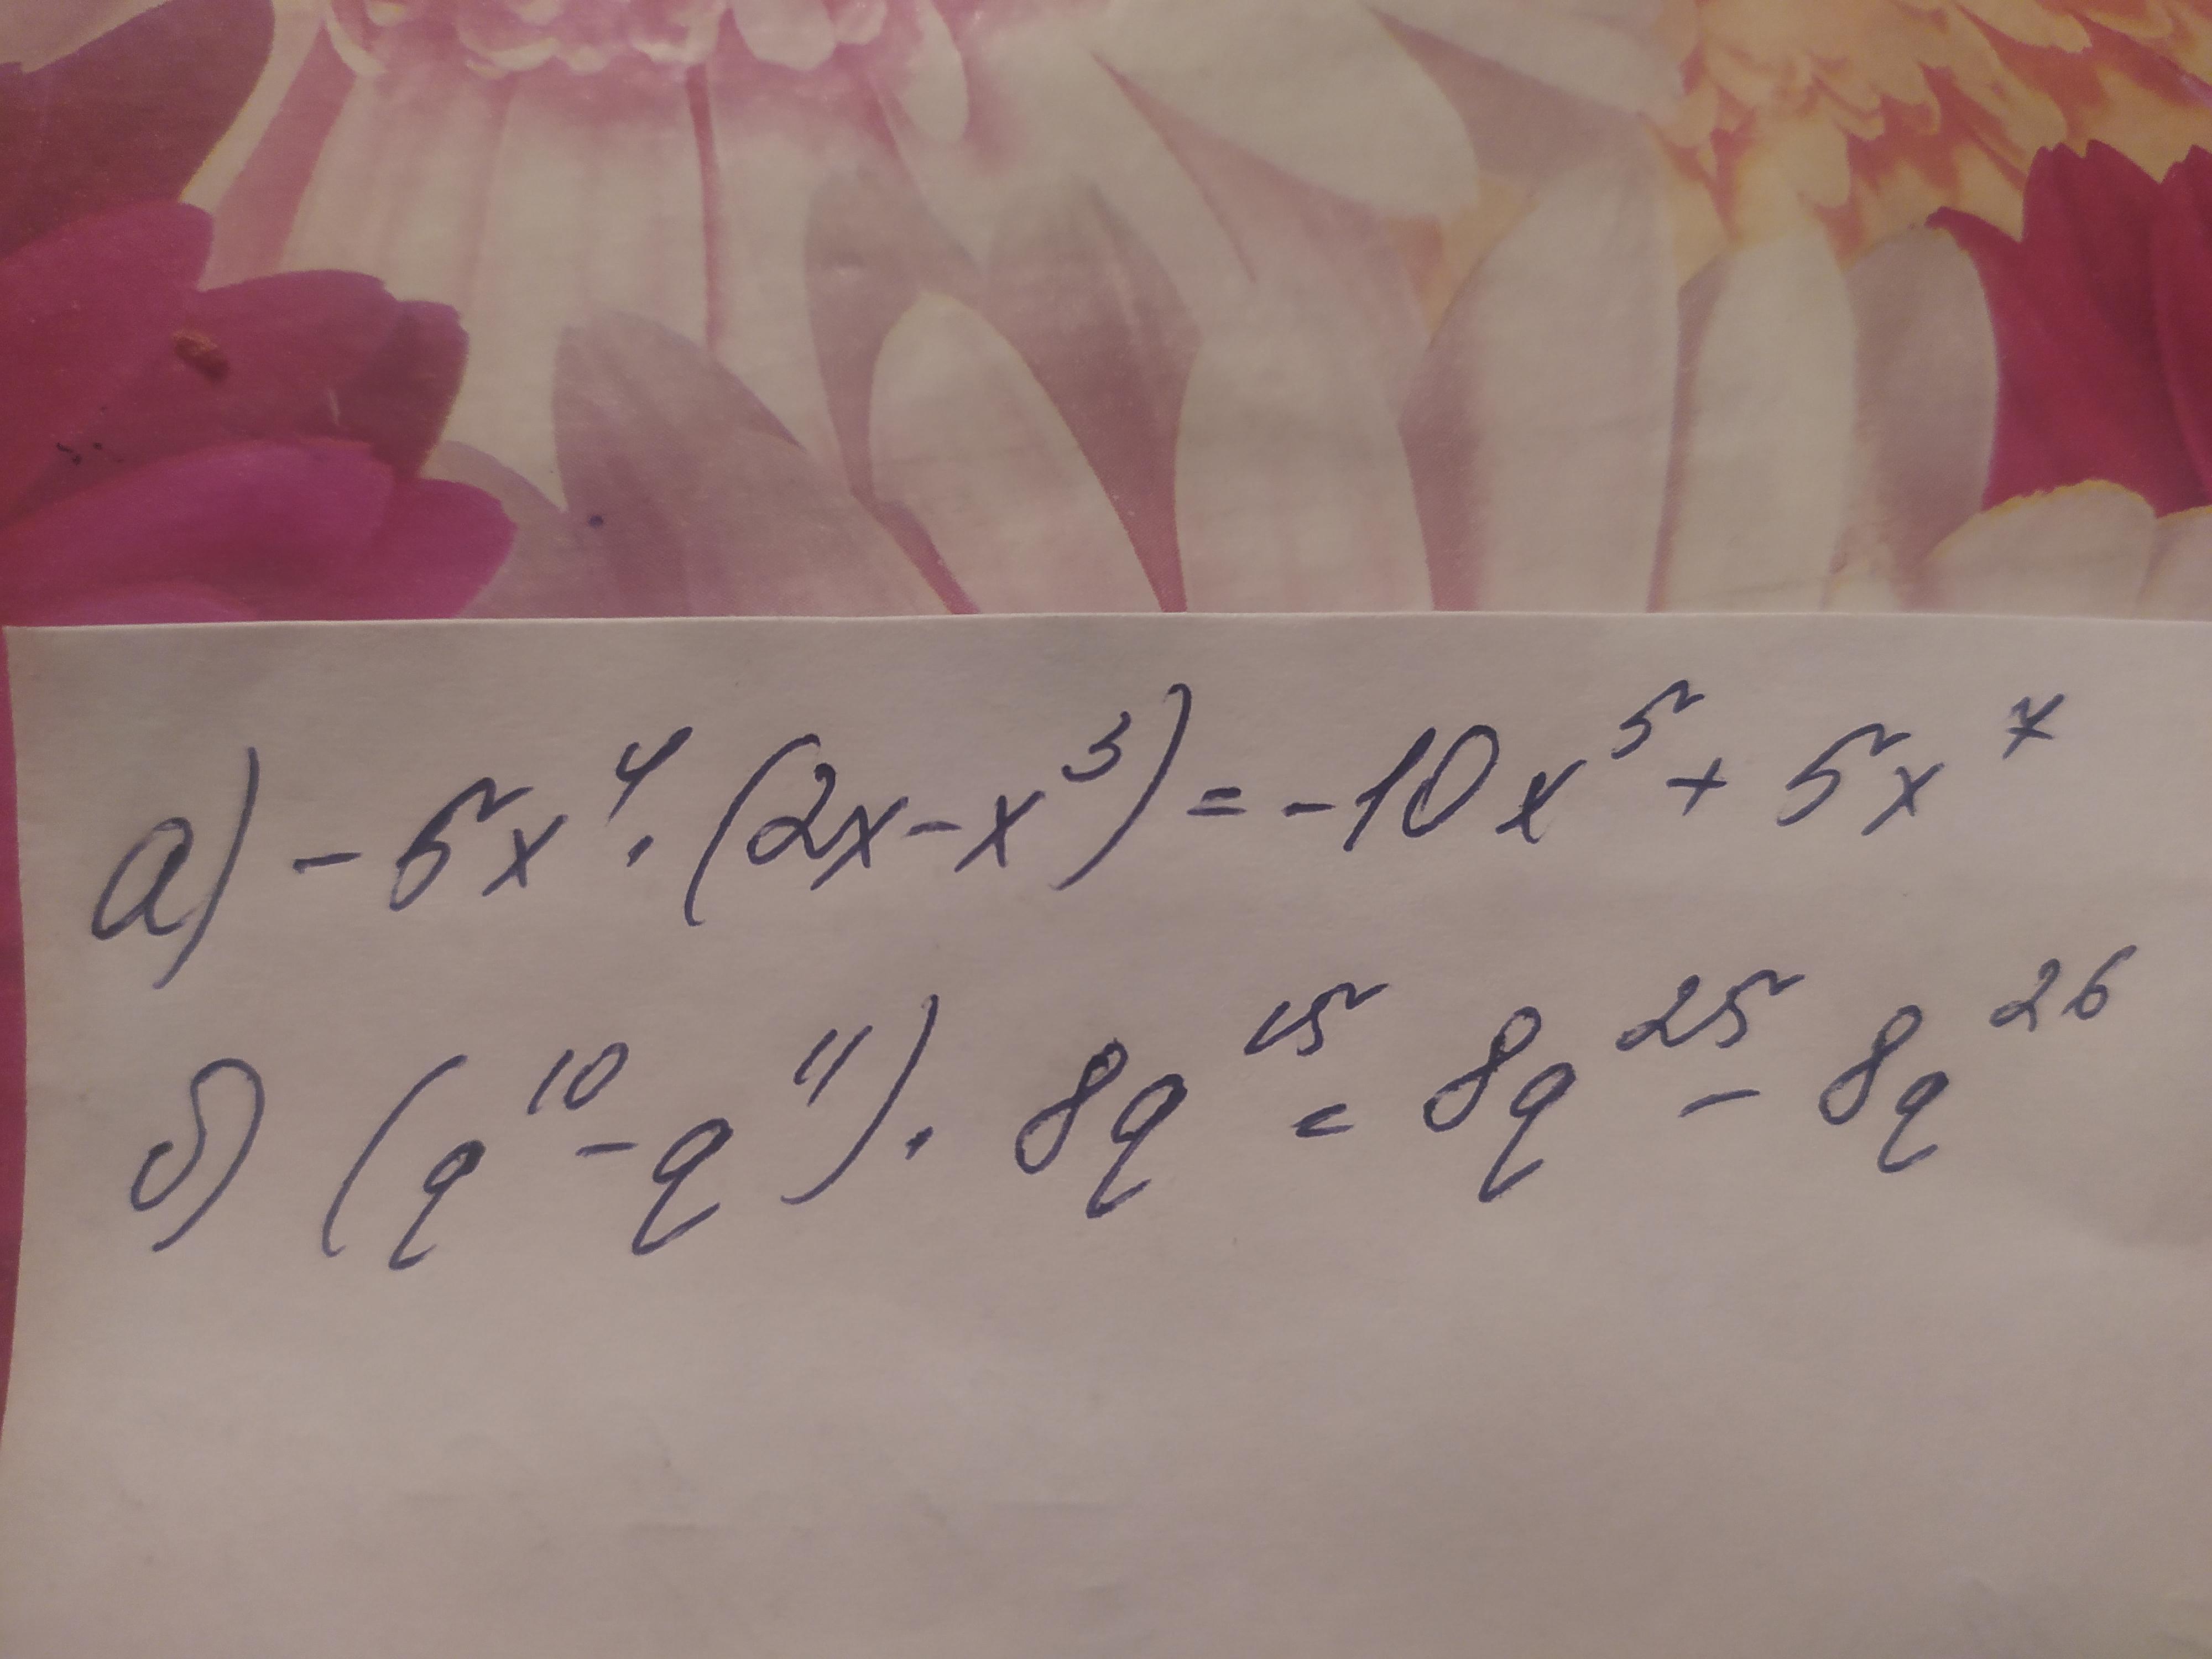 а) -5x⁴·(2x-x³)=-10x⁵+5x⁷
б) (q¹⁰-q¹¹)·8q¹⁵=8q²⁵-8q²⁶